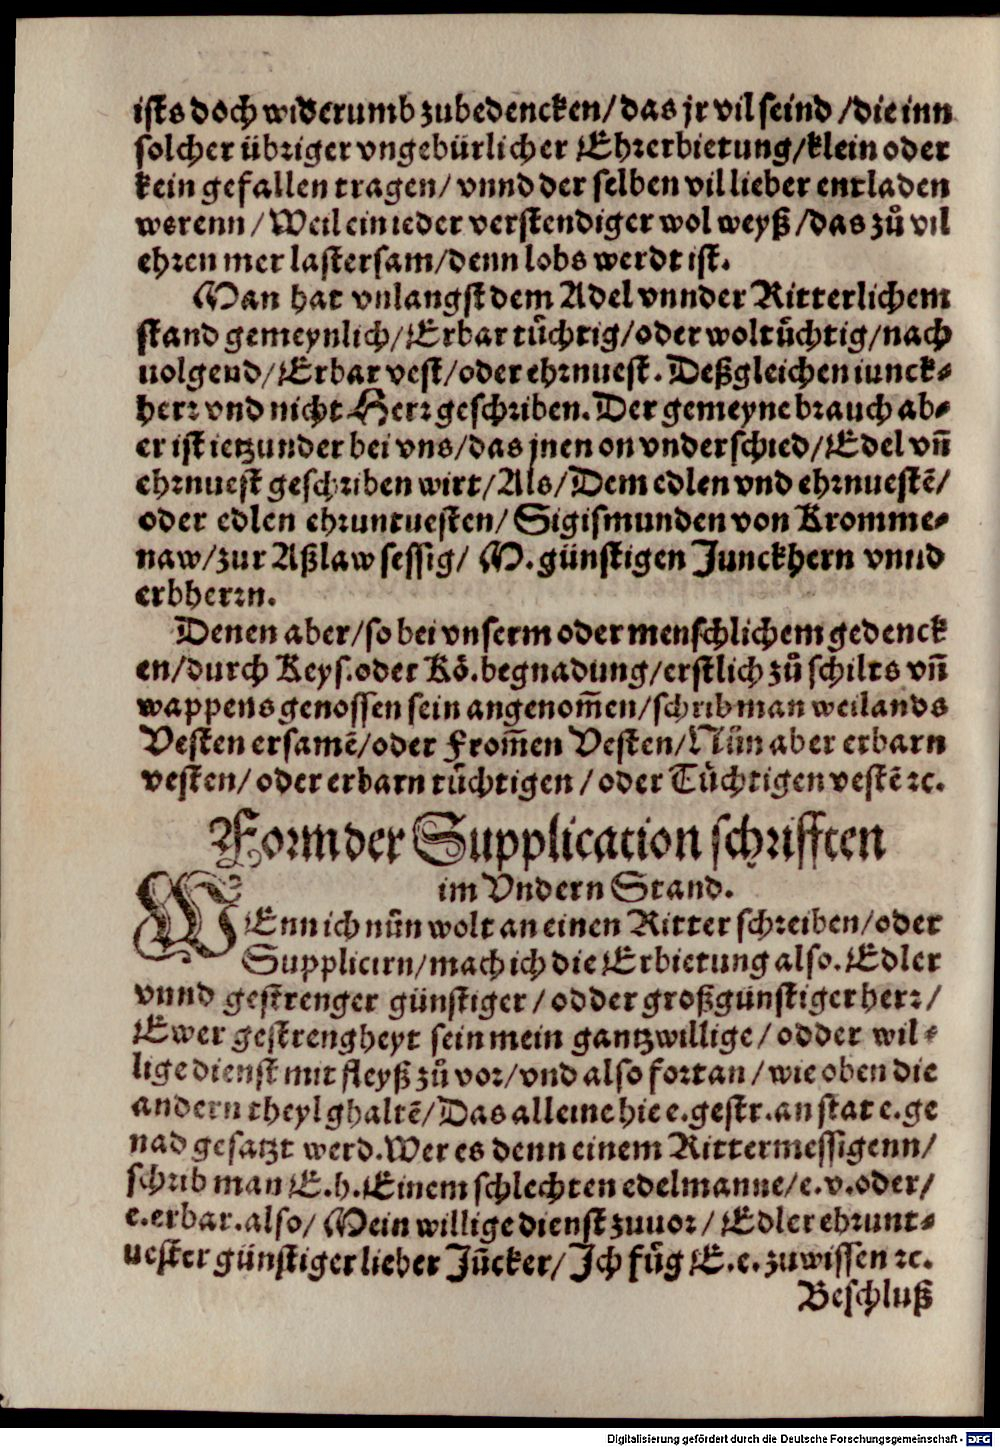 ists doch widerumb zubedencken/ das jr vil seind /die inn
solcher übriger vngebürlicher Ehrerbietung/klein oder
kein gefallen tragen/ vnnd der selben vil lieber entladen
werenn / Weil ein ieder verstendiger wol weyß /das zů vil
ehren mer lastersam/denn lobs werdt ist.
Man hat vnlangst dem Adel vnnder Ritterlichem
stand gemeynlich/Erbar tüchtig/oder woltüchtig/nach
uolgend/Erbar vest/oder ehrnuest. Deßgleichen iunck-
herr vnd nicht Herr geschriben. Der gemeyne brauch ab-
er ist ietzunder bei vns/das jnen on vnderschied/Edel vn̄
ehrnuest geschriben wirt/Als/Dem edlen vnd ehrnuestē/
oder edlen ehruntuesten/ Sigismunden von Kromme-
naw/zur Aßlaw sessig/ M. günstigen Junckhern vnnd
erbherrn.
Denen aber/so bei vnserm oder menschlichem gedenck
en/durch Keys. oder Kö. begnadung/erstlich zů schilts vn̄
wappens genossen sein angenom̄en/schrib man weilands
Vesten ersamē/oder From̄en Vesten/Nůn aber erbarn
vesten/ oder erbarn tüchtigen / oder Tüchtigen vestē ꝛc.
Form der Supplication schrifften
im Vndern Stand.
WEnn ich nůn wolt an einen Ritter schreiben/oder
Supplicirn/mach ich die Erbietung also. Edler
vnnd gestrenger günstiger / odder großgünstiger herr /
Ewer gestrengheyt sein mein gantzwillige / odder wil-
lige dienst mit fleyß zů vor/vnd also fortan / wie oben die
andern theyl ghaltē/Das alleine hie e.gestr.an stat e.ge
nad gesatzt werd.Wer es denn einem Rittermessigenn/
schrib man E.h.Einem schlechten edelmanne/e.v.oder/
e.erbar.also/ Mein willige dienst zuuor / Edler ehrunt-
uester günstiger lieber Jůcker/ Jch füg E.e. zuwissen ꝛc.
Beschluß
Digitalisierung gefördert durch die Deutsche Forschungsgemeinschaft - DFG